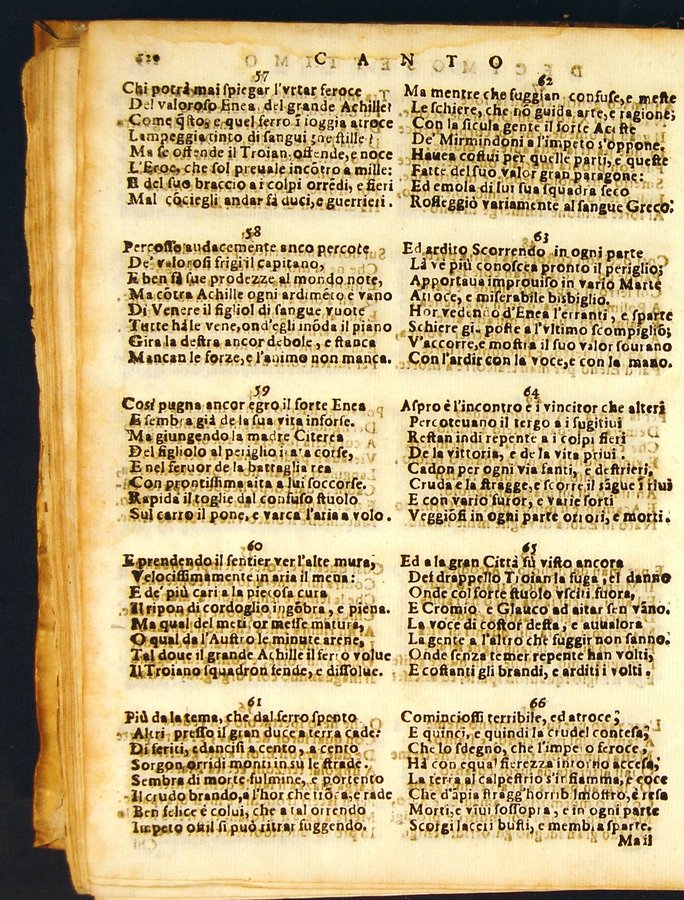 C A N T O
57
Chi potrà mai spiegar l'vrtar feroce
Del valoroso Enea, del grande Achille?
Come q̃sto, e quel ferro ī foggia atroce
Lampeggia tinto di sangui ne stille?
Ma se offende il Troian, offende, e noce
L'Eroe, che sol preuale incõtro a mille:
E del suo braccio a i colpi orrẽdi, e fieri
Mal cõciegli andar fà duci, e guerrieri.
58
Percosso audacemente anco percote
De' valorosi frigi il capitano,
E ben fà sue prodezze al mondo note,
Ma cõtra Achille ogni ardimẽto è vano
Di Venere il figliol di sangue vuote
Tutte hà le vene, ond'egli inõda il piano
Gira la destra ancor debole, e stanca
Mancan le forze, e l'animo non manca.
59
Così pugna ancor egro il forte Enea
E sembra già de la sua vita in forse.
Ma giungendo la madre Citerea
Del figliolo al periglio corse,
E nel feruor de la battaglia rea
Con prontissima aita a lui soccorse.
Rapida il toglie dal confuso stuolo
Sul carro il pone, e varca l'aria a volo.
60
E prendendo il sentier ver l'alte mura,
Velocissimamente in aria il mena:
E de' più cari a la pietosa cura
Il ripon di cordoglio ingõbra, e piena.
Ma qual del metitor messe matura,
O qual da l'Austro le minute arene,
Tal doue il grande Achille il ferro volue
Il Troiano squadron fende, e dissolue.
61
Più da la tema, che dal ferro spento
Altri presso il gran duce a terra cade:
Di feriti, ed ancisi a cento, a cento
Sorgon orridi monti in su le strade.
Sembra di morte fulmine, e portento
Il crudo brando, a l'hor che trõca, e rade
Ben felice è colui, che a tal orrendo
Impeto ostil si può ritrar fuggendo.
62
Ma mentre che fuggian confuse, e meste
Le schiere, che nõ guida arte, e ragione;
Con la sicula gente il forte Aceste
De' Mirmindoni a l'impeto s'oppone.
Hauea costui per quelle parti, e queste
Fatte del suo valor gran paragone:
Ed emola di lui sua squadra seco
Rosseggiò variamente al sangue Greco:
63
Ed ardito Scorrendo in ogni parte
Là ve più conoscea pronto il periglio;
Apportaua improuiso in vario Marte
Atroce, e miserabile bisbiglio.
Hor vedendo d'Enea l'erranti, e sparte
Schiere già poste a l'vltimo scompiglio;
V'accorre, e mostra il suo valor sourano
Con l'ardir con la voce, e con la mano.
64
Aspro è l'incontro e i vincitor che alteri
Percoteuano il tergo a i fugitiui
Restan indi repente a i colpi fieri
De la vittoria, e de la vita priui.
Cadon per ogni via fanti, e destrieri.
Cruda e la stragge, e scorre il sãgue i riui
E con vario furor, e varie sorti
Veggiõsi in ogni parte orrori, e morti.
65
Ed a la gran Città fù visto ancora
Del drappello Troian la fuga, e'l danno
Onde col forte stuolo vsciti fuora,
E Cromio e Glauco ad aitar sen vãno.
La voce di costor desta, e auualora
La gente a l'altro che fuggir non sanno.
Onde senza temer repente han volti,
E costanti gli brandi, e arditi i volti.
66
Cominciossi terribile, ed atroce;
E quinci, e quindi la crudel contesa;
Che lo sdegno, che l'impeto feroce,
Hà con equal fierezza intorno accesa;
La terra al calpestrio s'infiamma, e coce
Che d'ãpia stragg'horribil mostro, è resa
Morti, e viui sossopra, e in ogni parte
Scorgi laceri busti, e membra sparte.
Ma il